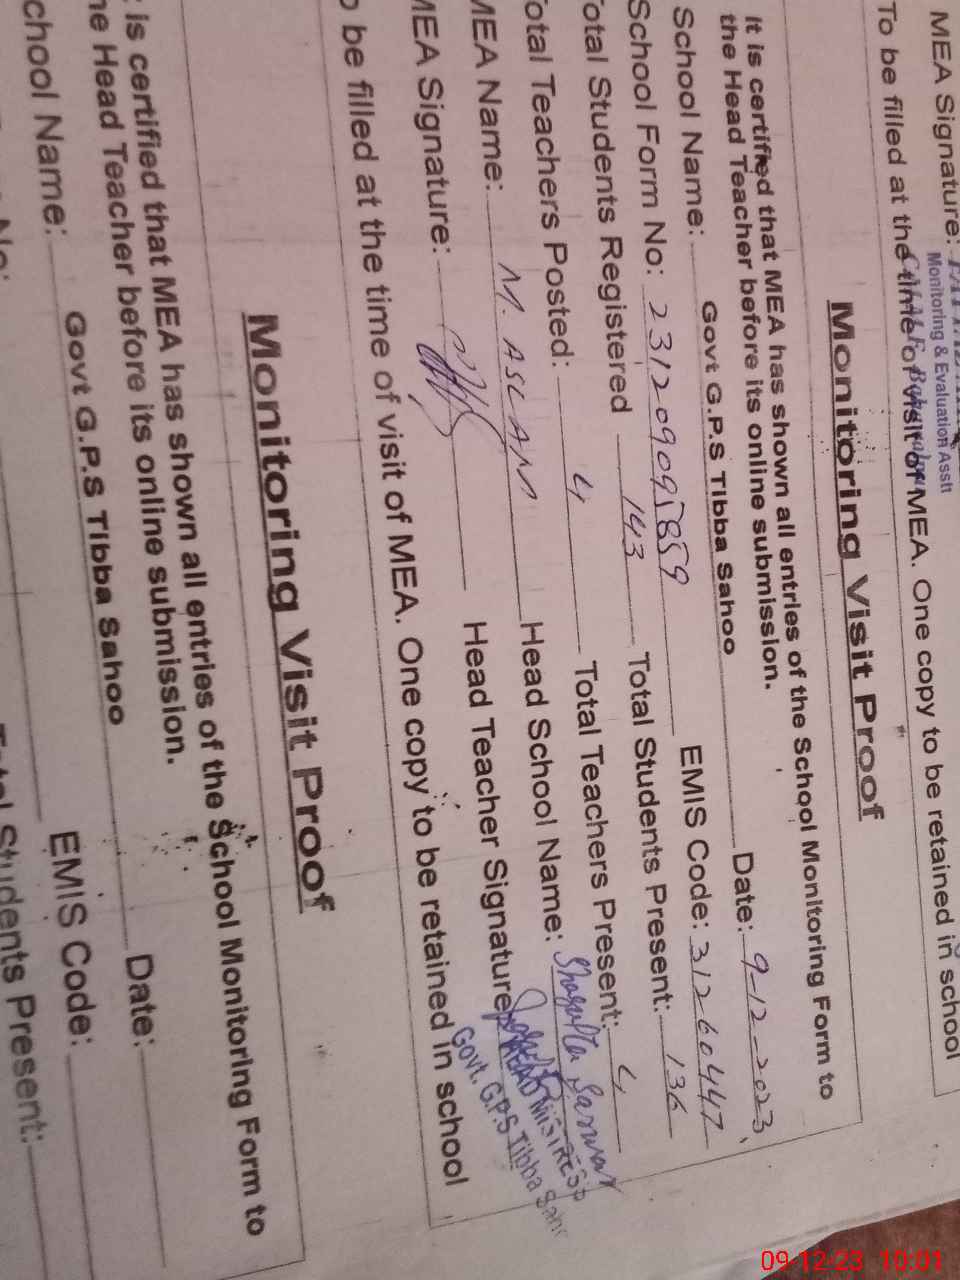 MEA Signature:
Monitoring & Evaluation Asstt
To be filled at the time of visit of MEA. One copy to be retained in school
Monitoring Visit Proof
It is certified that MEA has shown all entries of the School Monitoring Form to
the Head Teacher before its online submission.
School Name: Govt G.P.S Tibba Sahoo Date: 9-12-2023
School Form No: 231209095859 EMIS Code: 31260447
Total Students Registered 143 Total Students Present: 136
Total Teachers Posted: 4 Total Teachers Present: 4
MEA Name: M. ASLAM Head School Name: Shagufta Sarwar
MEA Signature: Head Teacher Signature
HEAD MISTRESS
Govt. G.P.S Tibba Sahoo
o be filled at the time of visit of MEA. One copy to be retained in school
Monitoring Visit Proof
t is certified that MEA has shown all entries of the School Monitoring Form to
he Head Teacher before its online submission.
chool Name: Govt G.P.S Tibba Sahoo Date:
No: EMIS Code:
Total Students Present:
09-12-23 10:01